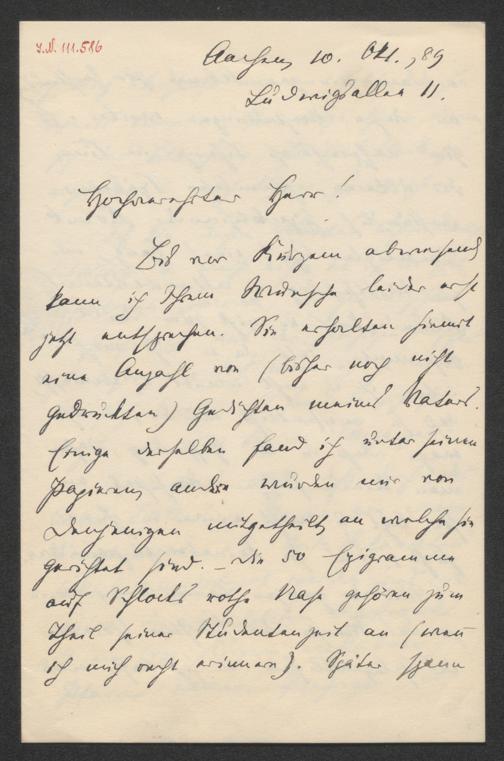 I.N. 111.586
Aachen, 10. Okt. 89
Ludwigsallee 11.
Hochverehrter Herr!
Bis vor Kurzem abwesend
kann ich Ihrem Wunsche leider erst
jetzt entsprechen. Sie erhalten hiermit
eine Anzahl von (bisher noch nicht
gedruckten) Gedichten meines Vaters.
Einige derselben fand ich unter seinen
Papieren, andere wurden mir von
Denjenigen mitgetheilt, an welche sie
gerichtet sind. – Die 50 Epigramme
auf Schlocks rothe Nase gehören zum
Theil seiner Studentenzeit an (wenn
ich mich recht erinnere). Später